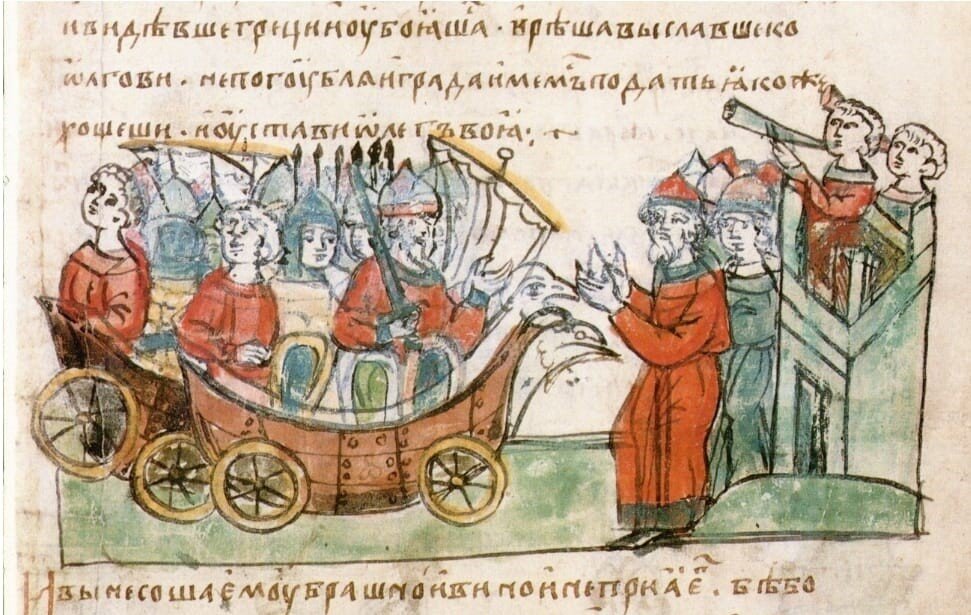 и видѣвше греци и оубоꙗша · и рѣша выславше ко
ѡлгови · не погоублꙗи града имемъ по дать ꙗкоже
хощеши · и оустави ѡлегъ воꙗ ·
И вынесоша емоу брашно и вино и не приꙗ е · бѣ бо